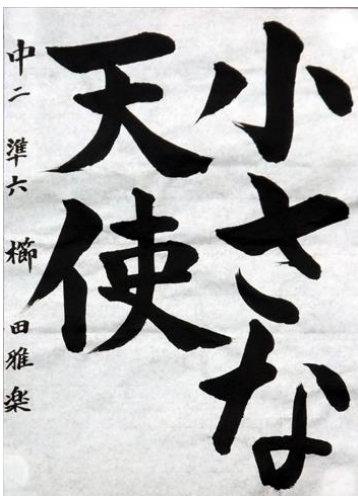 小さな
天使
中二 準六 櫛田雅楽